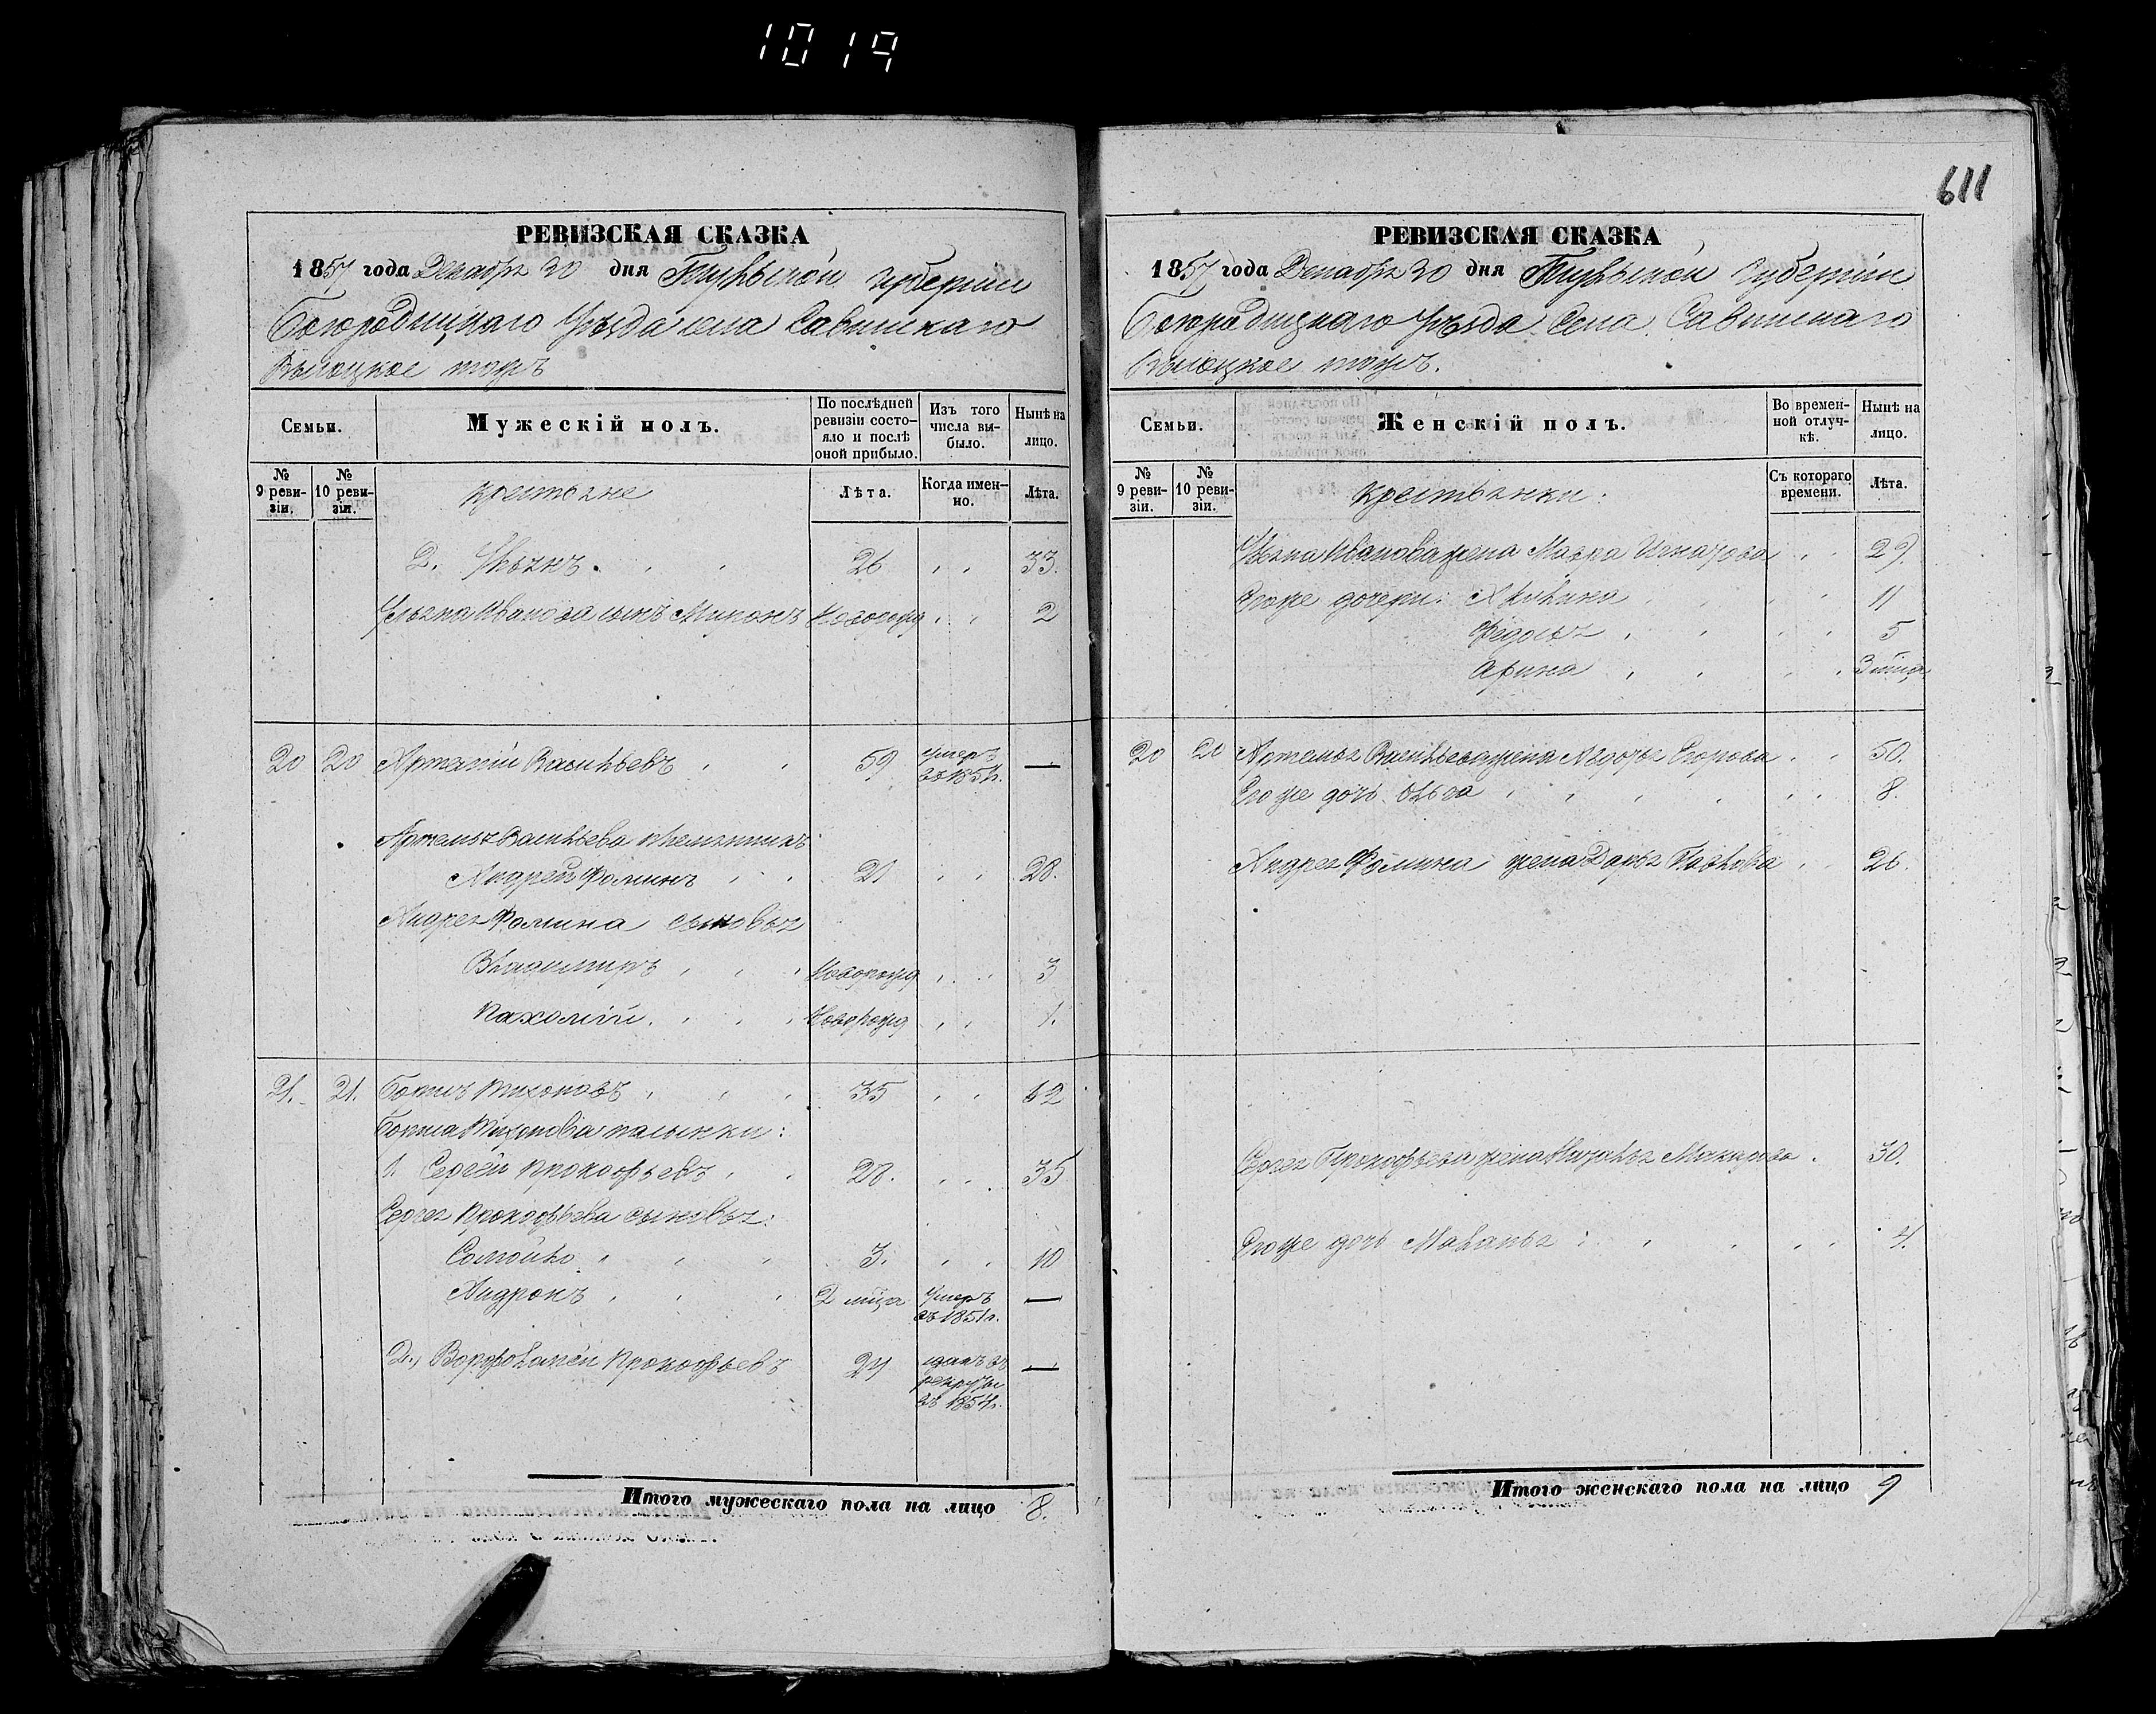 1019
611
РЕВИЗСКАЯ СКАЗКА
1857 года Декабря 20 дня Тульской губернии
Богородицкаго Уѣзда села Савинскаго
тожъ
Семьи.
Мужескій полъ.
По послѣдней ревизіи состояло и послѣ оной прибыло.
Изъ того числа выбыло.
Нынѣ на лицо.
№ 9 ревизіи.
№ 10 ревизіи.
крестьяне
Лѣта.
Когда именно.
Лѣта.
2. Ульянъ. 26 33.
Ульяна Иванова сынъ Миронъ новорожд 2
20 20 Артемій Васильевъ 59 умеръ въ 185 г. —
Артемья Васильева племянникъ
Андрей Фоминъ 21 28.
Андрея Фомина сыновья
Владимиръ новорожд 3
Пахомій. новорожд 1.
21. 21. Тихоновъ 35 42
Тихонова пасынки:
1. Сергей Прокофьевъ 28. 35
Сергея Прокофьева сыновья:
Самойло 3. 10
Андронъ 2 мѣца умеръ въ 1851 г. —
2., Варфоламей Прокофьевъ 24 сданъ въ рекруты въ 1854 г. —
Итого мужескаго пола на лицо 8.
РЕВИЗСКАЯ СКАЗКА
1857 года Декабря 20 дня Тульской Губерніи
Богородицкаго Уѣзда Села Савинскаго
тожъ.
Семьи.
Женскій полъ.
Во временной отлучкѣ.
Нынѣ на лицо.
№ 9 ревизіи.
№ 10 ревизіи.
крестьянки.
Съ котораго времени.
Лѣта.
Ульяна Иванова жена Мавра 29.
Его же дочери: Акулина 11
Федосья 5
Арина 3 мѣца
20 20 Артемья Васильева жена Авдотья Егорова 50.
Его же дочь Ольга 8.
Андрея Фомина жена Дарья Павлова 26.
Сергея Прокофьева жена Макарова 30.
Его же дочь Маланья 4.
Итого женскаго пола на лицо 9